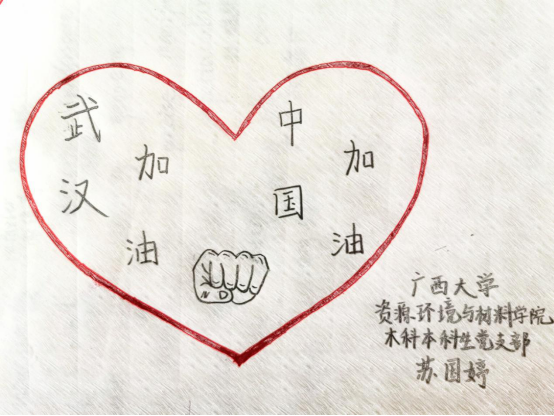 武汉
加油
中国
加油
N D
广西大学
资源环境与材料学院
木科本科生党支部
苏国婷